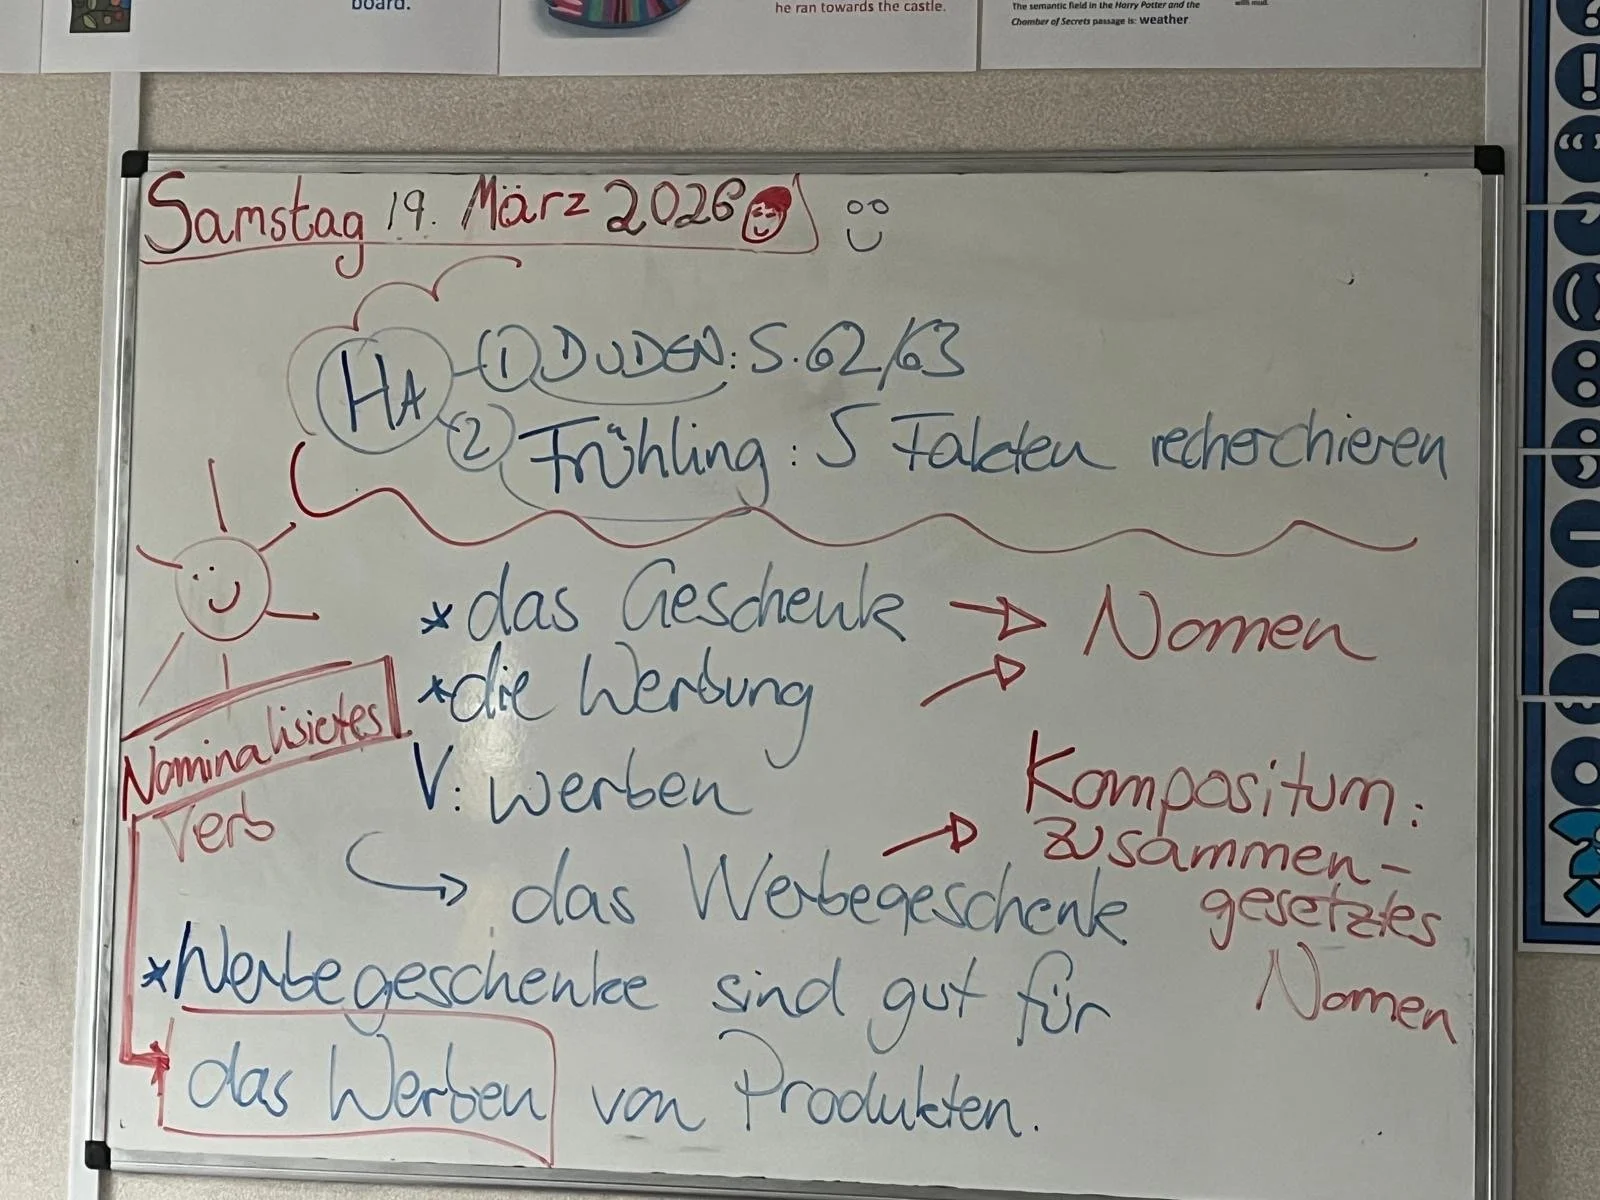 board.
he ran towards the castle.
The semantic field in the Harry Potter and the
Chamber of Secrets passage is: weather
with mud.
Samstag 19. März 2026
HA
① DUDEN: S. 62/63
② Frühling: 5 Fakten recherchieren
* das Geschenk → Nomen
* die Werbung
Nominalisiertes
Verb
V: werben
Kompositum:
zusammen-
gesetztes
Nomen
das Werbegeschenk
* Werbegeschenke sind gut für
das Werben von Produkten.